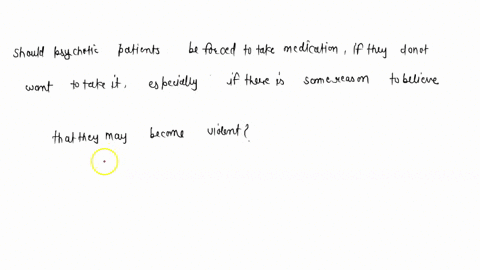 Should psychotic patients be forced to take medication, If they donot
want to take it, especially if there is some reason to believe
that they may become violent?